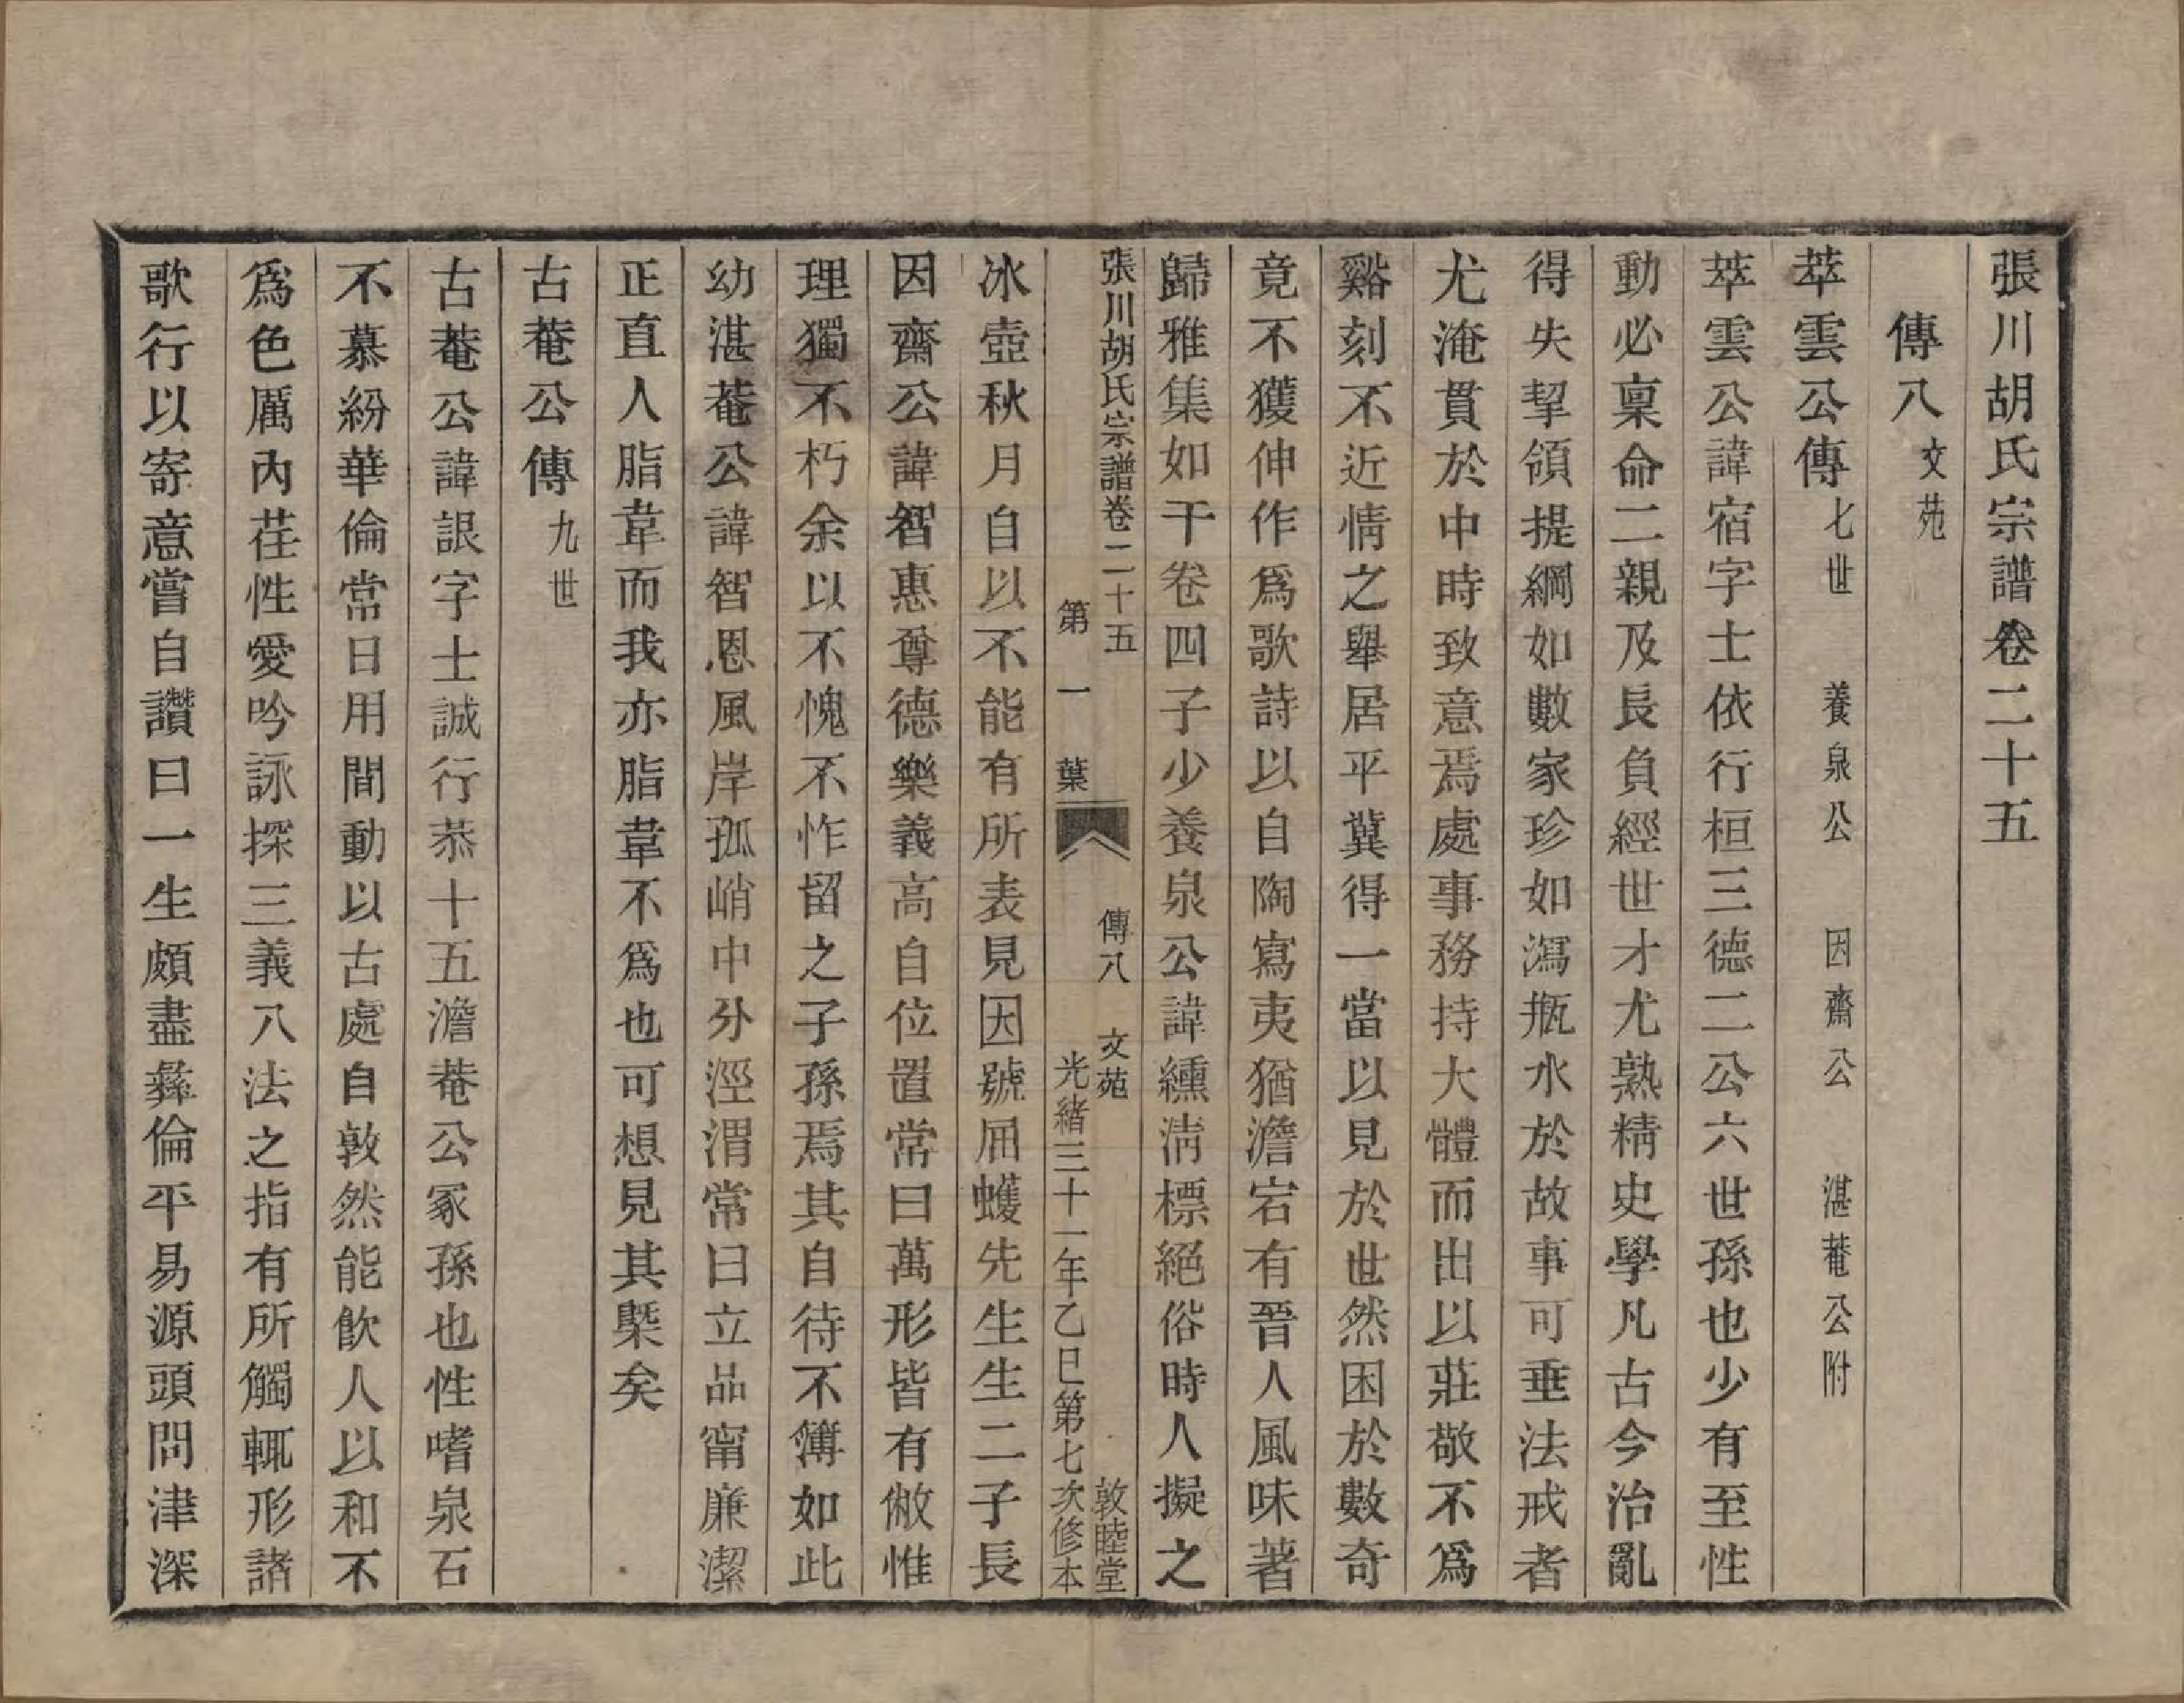 張川胡氏宗譜卷二十五
傳八 文苑
萃雲公傳 七世 養泉公 因齋公 湛菴公附
萃雲公諱宿字士依行桓三德二公六世孫也少有至性
動必稟命二親及長負經世才尤熟精史學凡古今治亂
得失挈領提綱如數家珍如瀉瓶水於故事可垂法戒者
尤淹貫於中時致意焉處事務持大體而出以莊敬不爲
谿刻不近情之舉居平冀得一當以見於世然困於數奇
竟不獲伸作爲歌詩以自陶寫夷猶澹宕有晉人風味著
歸雅集如干卷四子少養泉公諱纁淸標絕俗時人擬之
張川胡氏宗譜卷二十五 傳八 文苑 敦睦堂
第一葉 光緒三十一年乙巳第七次修本
冰壺秋月自以不能有所表見因號屈蠖先生生二子長
因齋公諱智惠尊德樂義高自位置常曰萬形皆有敝惟
理獨不朽余以不愧不怍留之子孫焉其自待不簿如此
幼湛菴公諱智恩風岸孤峭中分涇渭常曰立品甯廉潔
正直人脂韋而我亦脂韋不爲也可想見其槩矣
古菴公傳 九世
古菴公諱詪字士誠行恭十五澹菴公冢孫也性嗜泉石
不慕紛華倫常日用間動以古處自敦然能飮人以和不
爲色厲內荏性愛吟詠探三義八法之指有所觸輒形諸
歌行以寄意嘗自讚曰一生頗盡彝倫平易源頭問津深